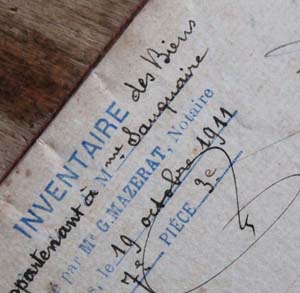 INVENTAIRE des Biens
appartenant à Mme Sauquaire
par Me G. MAZERAT, Notaire
, le 19 octobre 1911
7e PIÈCE 3e